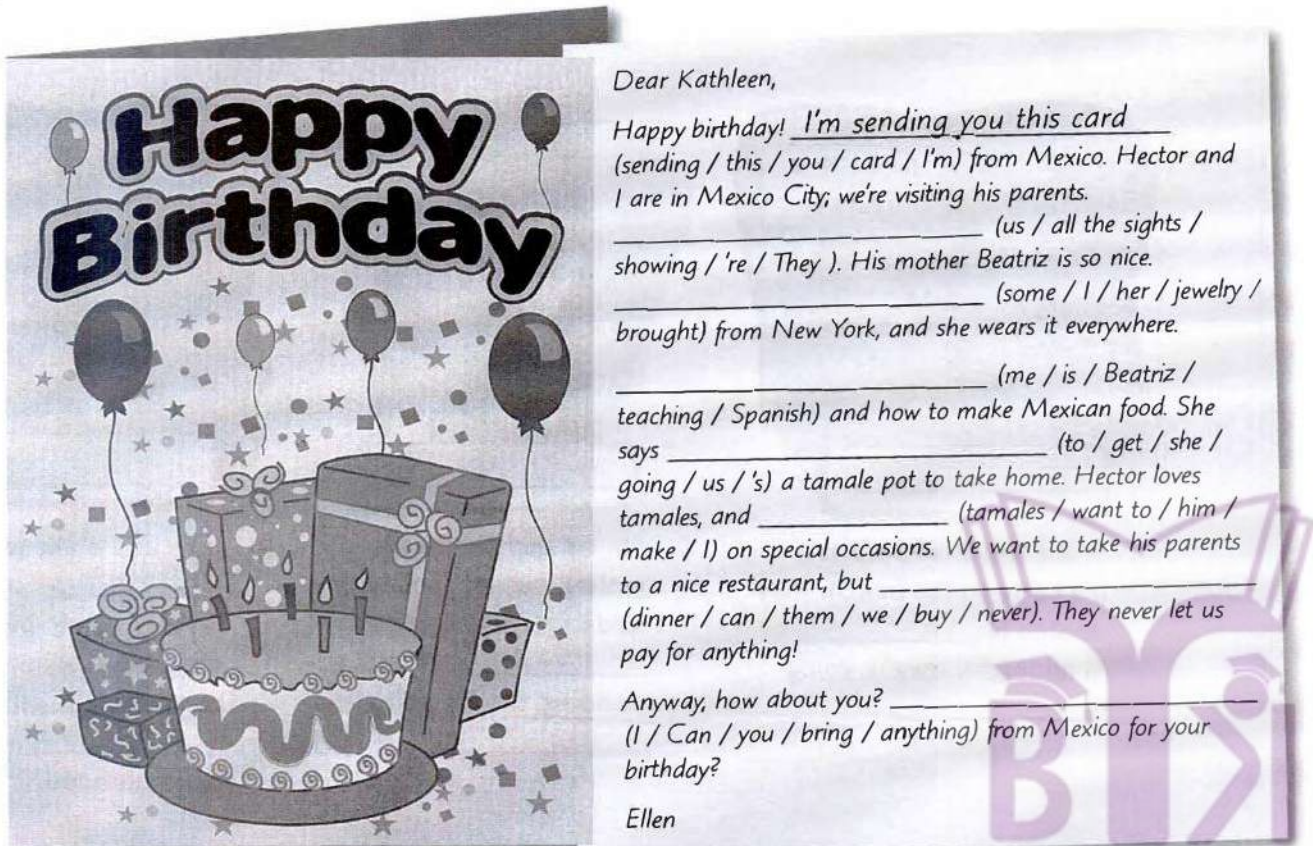 Happy
Birthday
Dear Kathleen,
Happy birthday! I'm sending you this card
(sending / this / you / card / I'm) from Mexico. Hector and
I are in Mexico City; we're visiting his parents.
____________________ (us / all the sights /
showing / 're / They ). His mother Beatriz is so nice.
____________________ (some / I / her / jewelry /
brought) from New York, and she wears it everywhere.
____________________ (me / is / Beatriz /
teaching / Spanish) and how to make Mexican food. She
says ____________________ (to / get / she /
going / us / 's) a tamale pot to take home. Hector loves
tamales, and __________ (tamales / want to / him /
make / I) on special occasions. We want to take his parents
to a nice restaurant, but ____________________
(dinner / can / them / we / buy / never). They never let us
pay for anything!
Anyway, how about you? ____________________
(I / Can / you / bring / anything) from Mexico for your
birthday?
Ellen